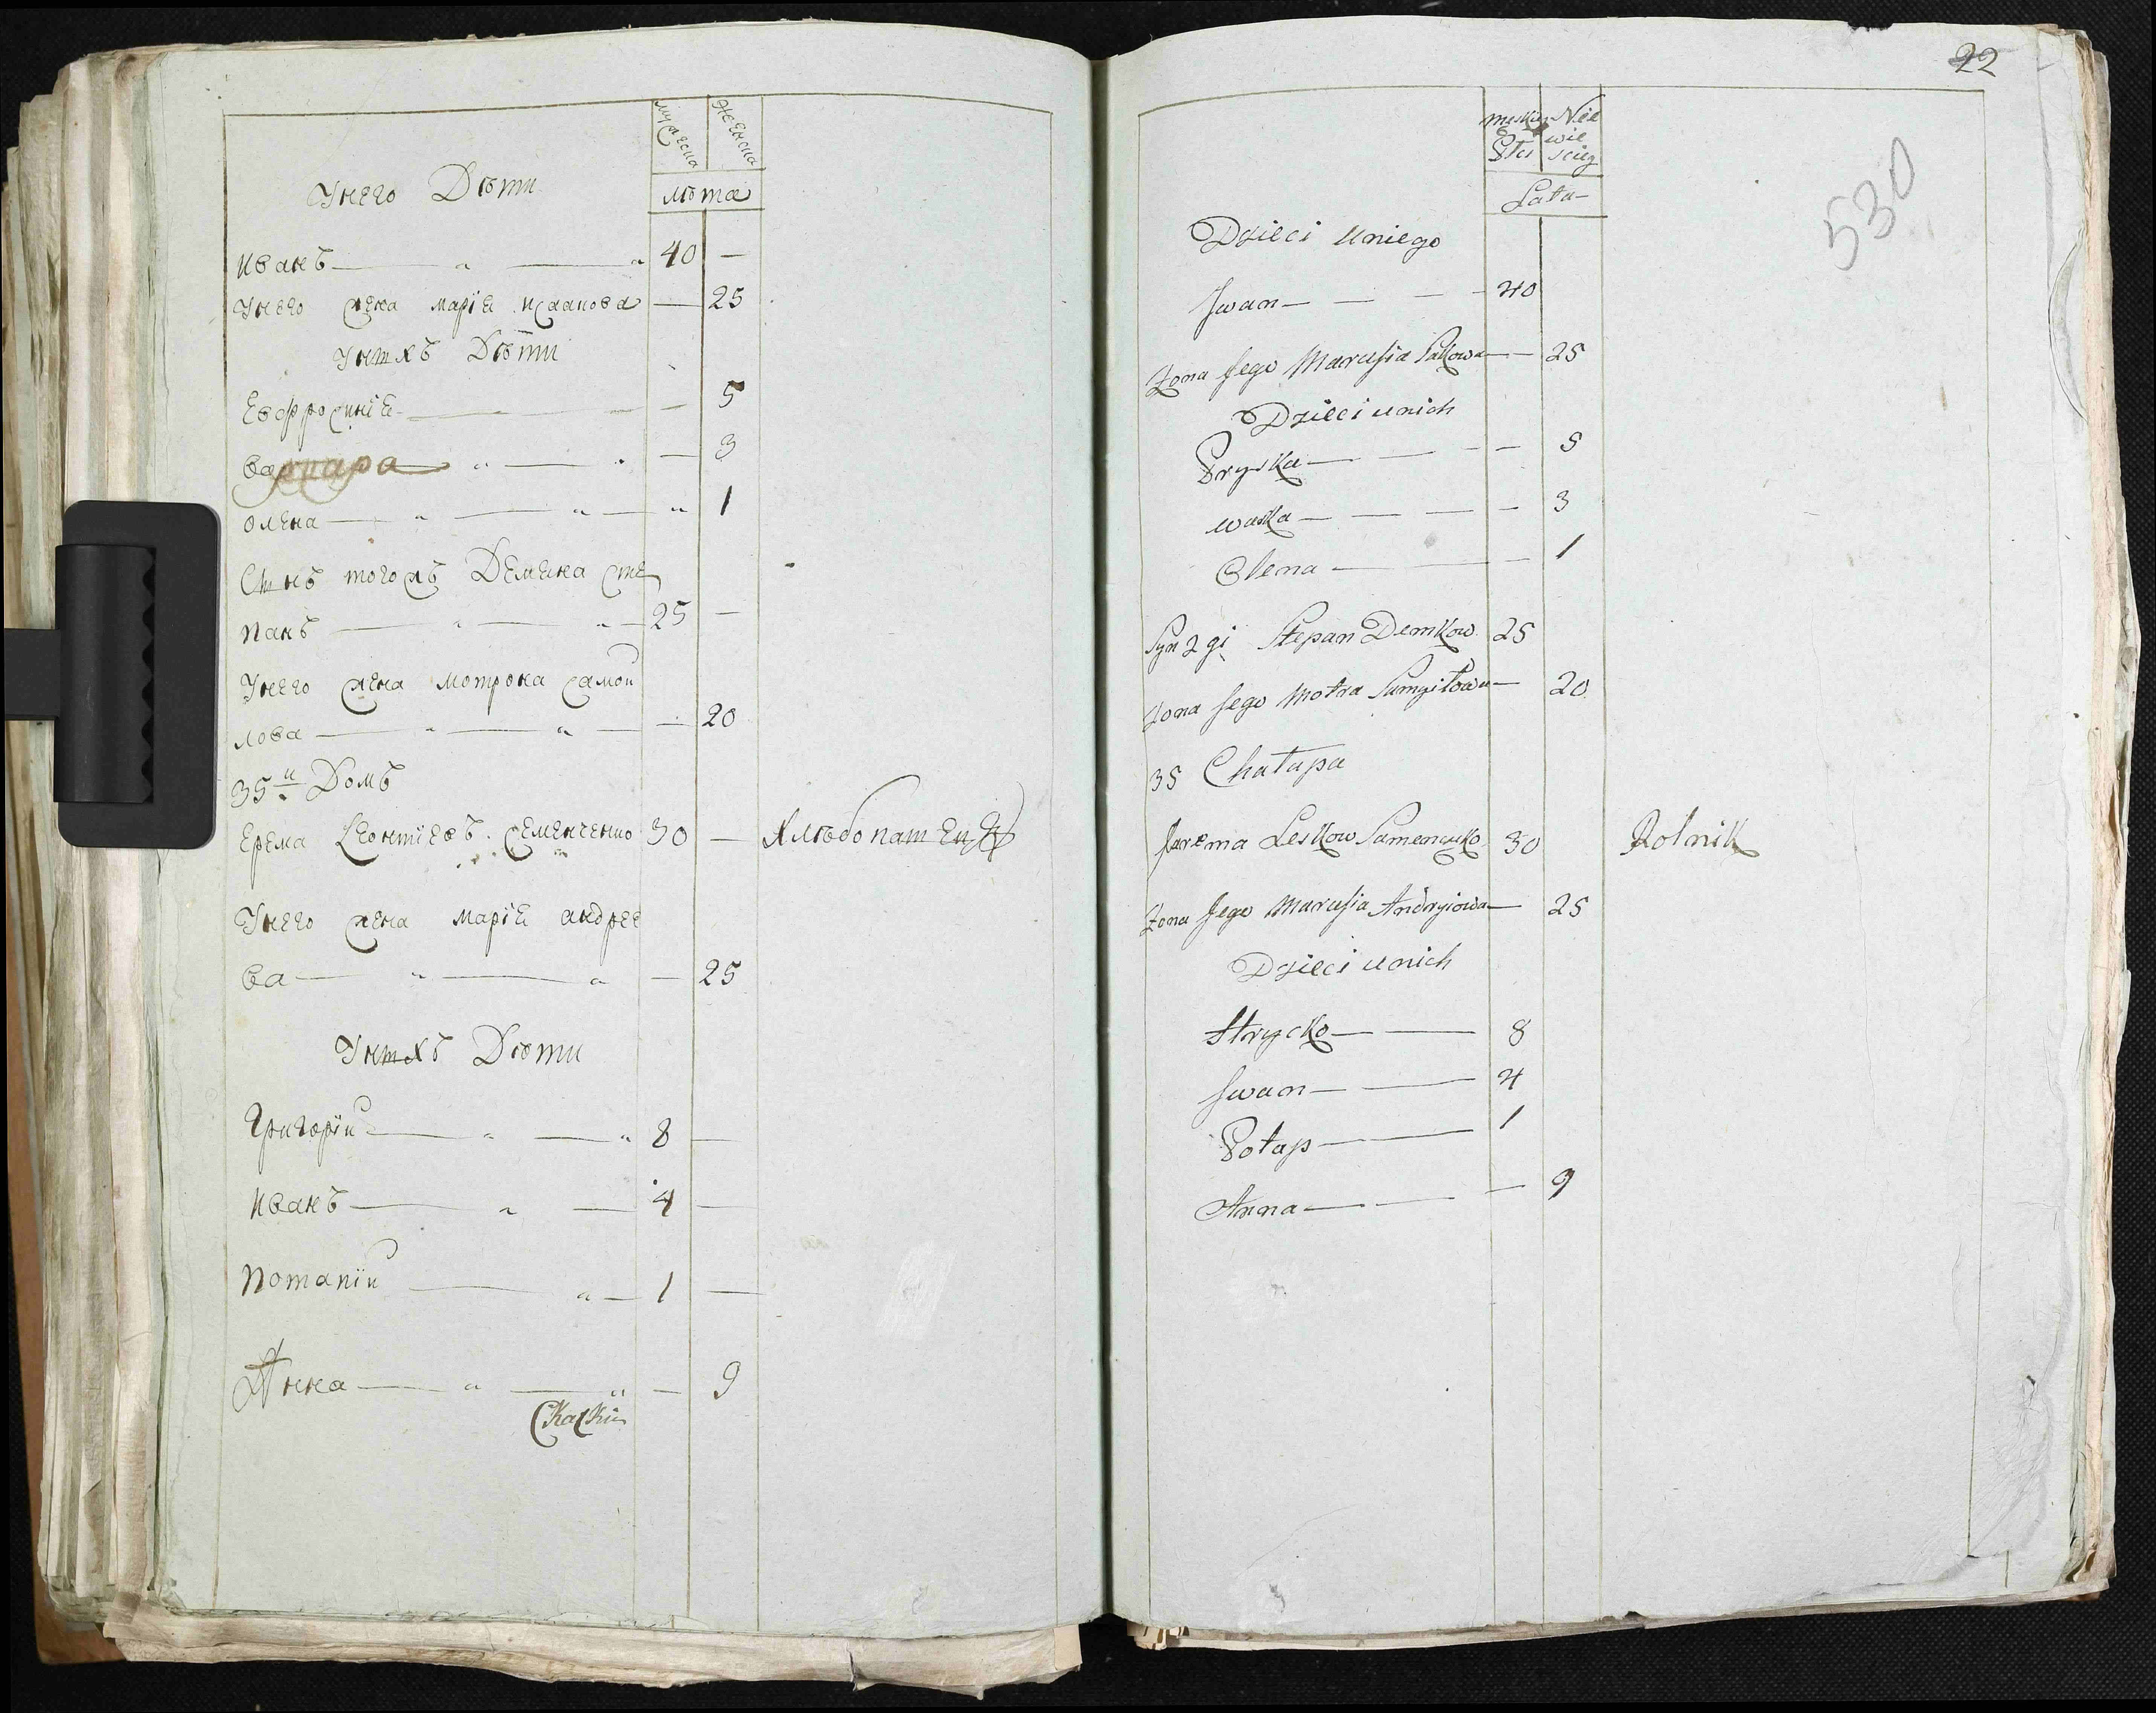 Мужеска Женска
лѣта
У него Дѣти
Иванъ — " — " 40 —
У него жена Марія Исакова — 25
У нихъ Дѣти
Евфросинія — — — 5
Варвара — " — " — 3
Олена — " — " — " 1
Сынъ тогожъ Демена Сте
панъ — " — " — 25 —
У него жена Мотрона Самой
лова — " — " — — 20
35й Домъ
Ерема Леонтіевъ Семенченко 30 — Хлѣбопашецъ
У него жена Марія Андрее
ва — " — " — 25
У нихъ Дѣти
Григорій — " — " 8 —
Иванъ — " — 4 —
Потапій — " — 1 —
Анна — " — " — 9
Скаски
22
530
męskiey Płci Nie wie sciey
Lata
Dzieci u niego
Iwan — — — — 40
Żona Jego Marusia — — 25
Dzieci u nich
Pryska — — — — 5
Waska — — — — 3
Olena — — — 1
Syn 2gi Stepan Demkow 25
Żona Jego Motra Samyiłowa — 20
35 Chałupa
Jarema Leskow Samenczuko 30 Rolnik
Żona Jego Marusia Andryiowa — 25
Dzieci u nich
Hrycko — — 8
Iwan — — 4
Potap — — 1
Anna — — — 9